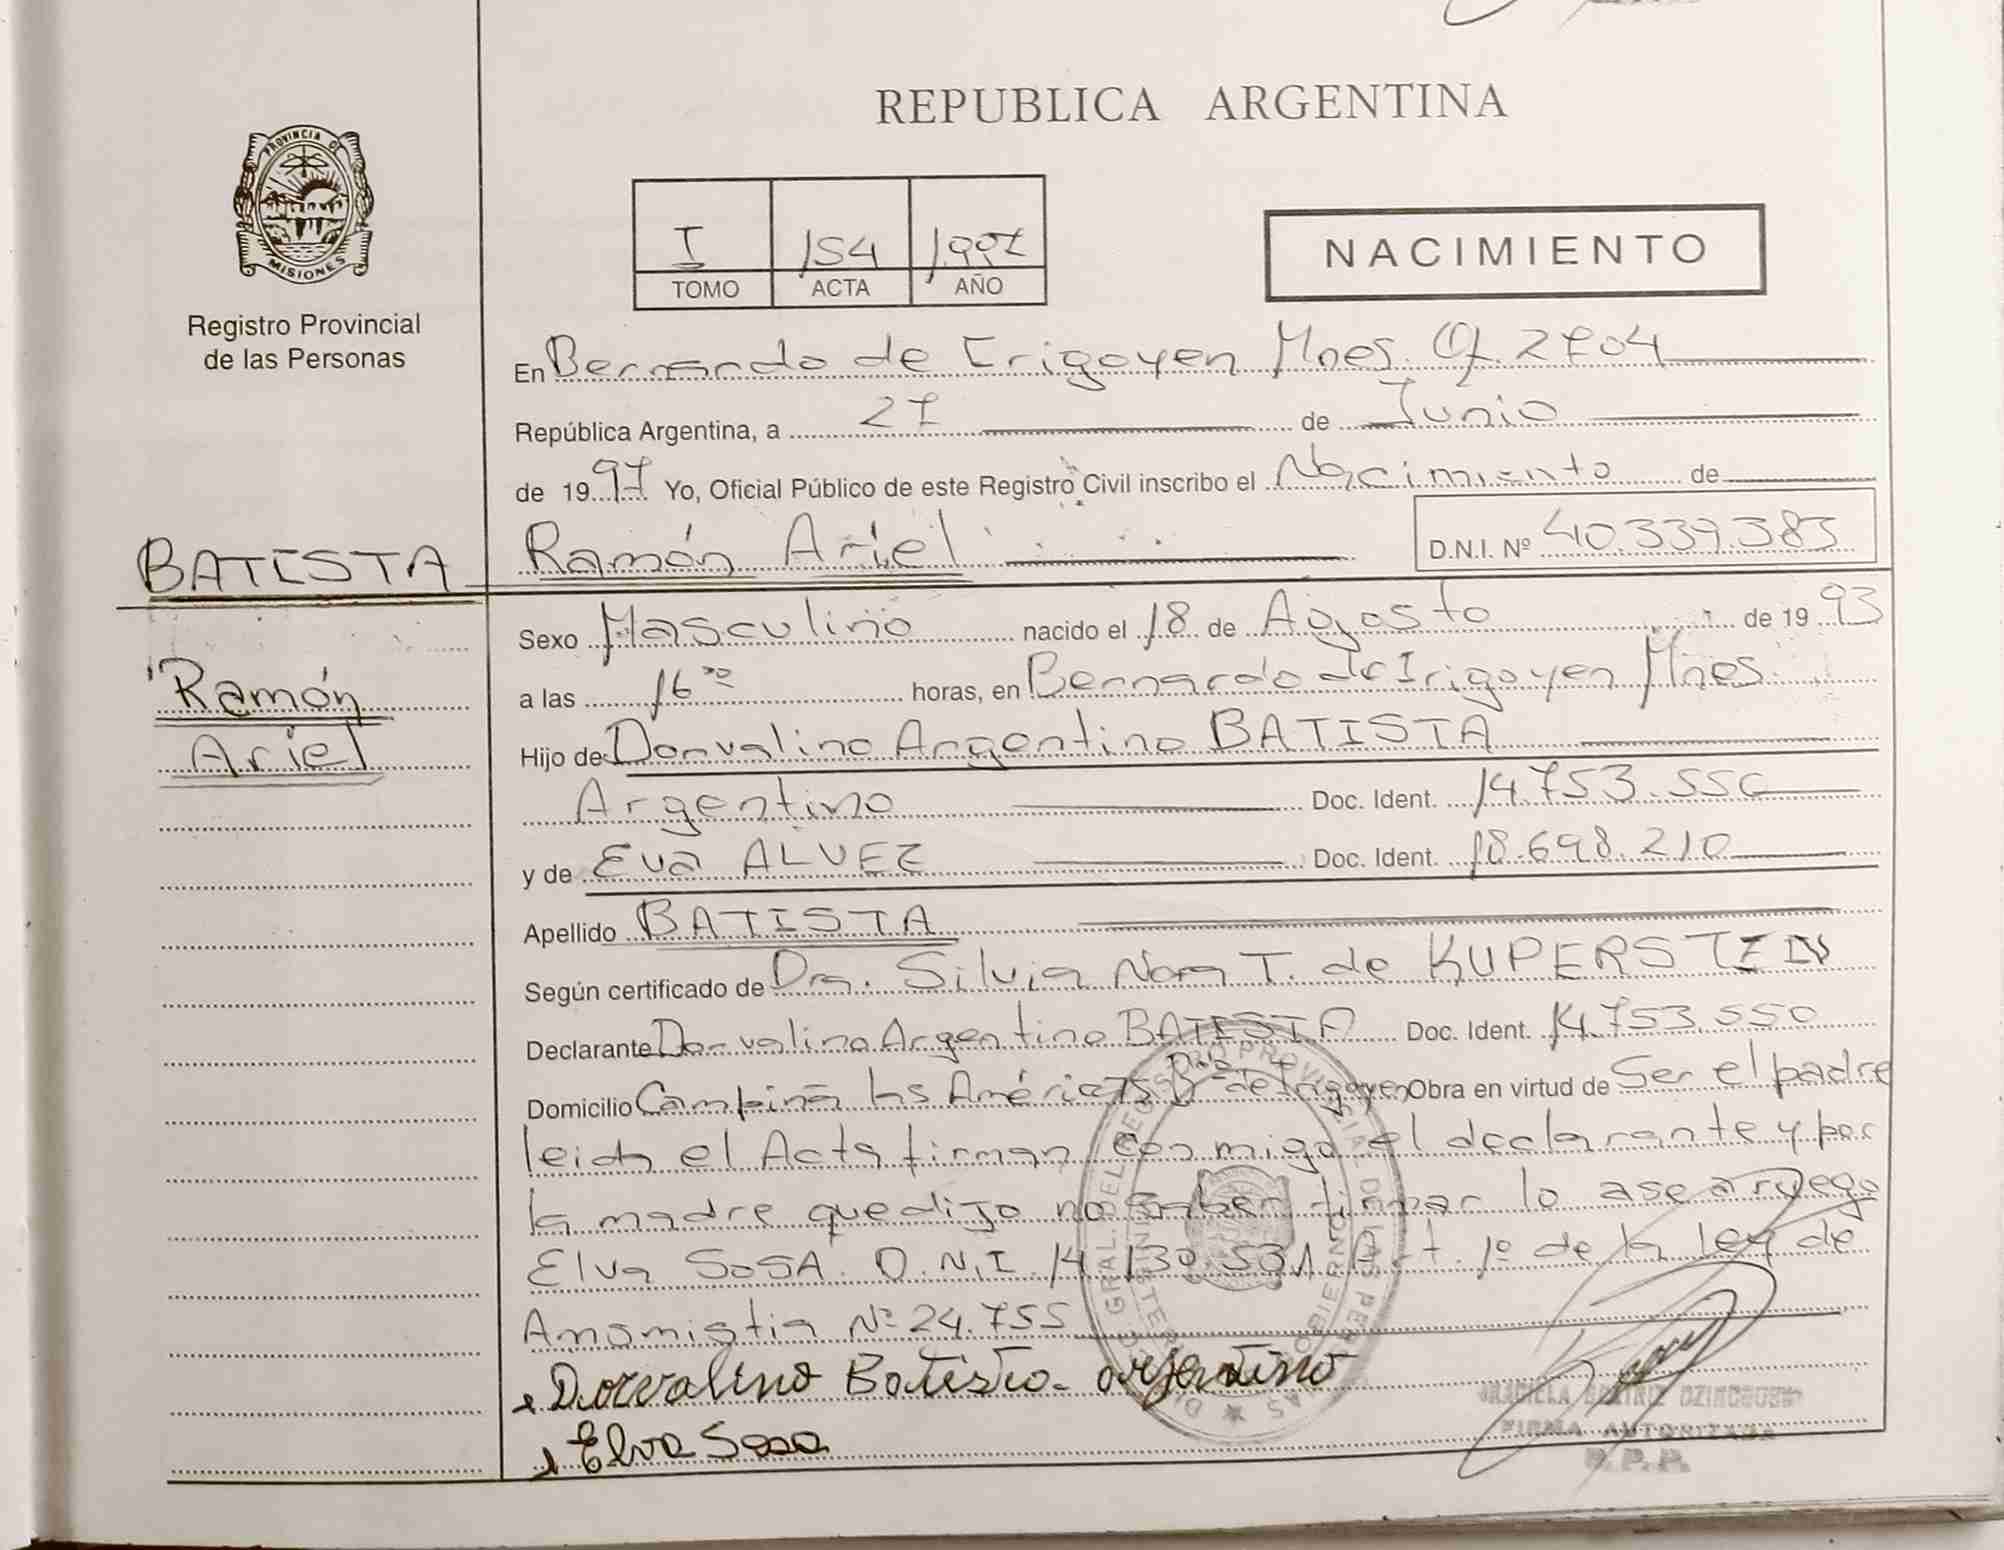 REPUBLICA ARGENTINA
PROVINCIA DE
MISIONES
Registro Provincial
de las Personas
I 154 1.997
TOMO ACTA AÑO
NACIMIENTO
En Bernardo de Irigoyen Mnes. Of. 2704
República Argentina, a 27 de Junio
de 1997 Yo, Oficial Público de este Registro Civil inscribo el Nacimiento de
BATISTA Ramón Ariel D.N.I. Nº 40.339.383
Ramón
Ariel
Sexo Masculino nacido el 18 de Agosto de 1993
a las 16 horas, en Bernardo de Irigoyen Mnes.
Hijo de Dorvalino Argentino BATISTA
Argentino Doc. Ident. 14.753.550
y de Eva ALVEZ Doc. Ident. 18.698.210
Apellido BATISTA
Según certificado de Dra. Silvia T. de KUPERSTEIN
Declarante Dorvalino Argentino BATISTA Doc. Ident. 14.753.550
Domicilio Campiña las Américas Bdo de Irigoyen Obra en virtud de Ser el padre
leida el Acta firman conmigo el declarante y por
la madre que dijo no saber firmar lo ase a ruego
Elva SOSA. D.N.I. 14.130.531 Art. 1º de la ley de
Anamistia Nº 24.755
Dorvalino Batista argentino
Elva Sosa
FIRMA AUTORIZADA
R.P.P.